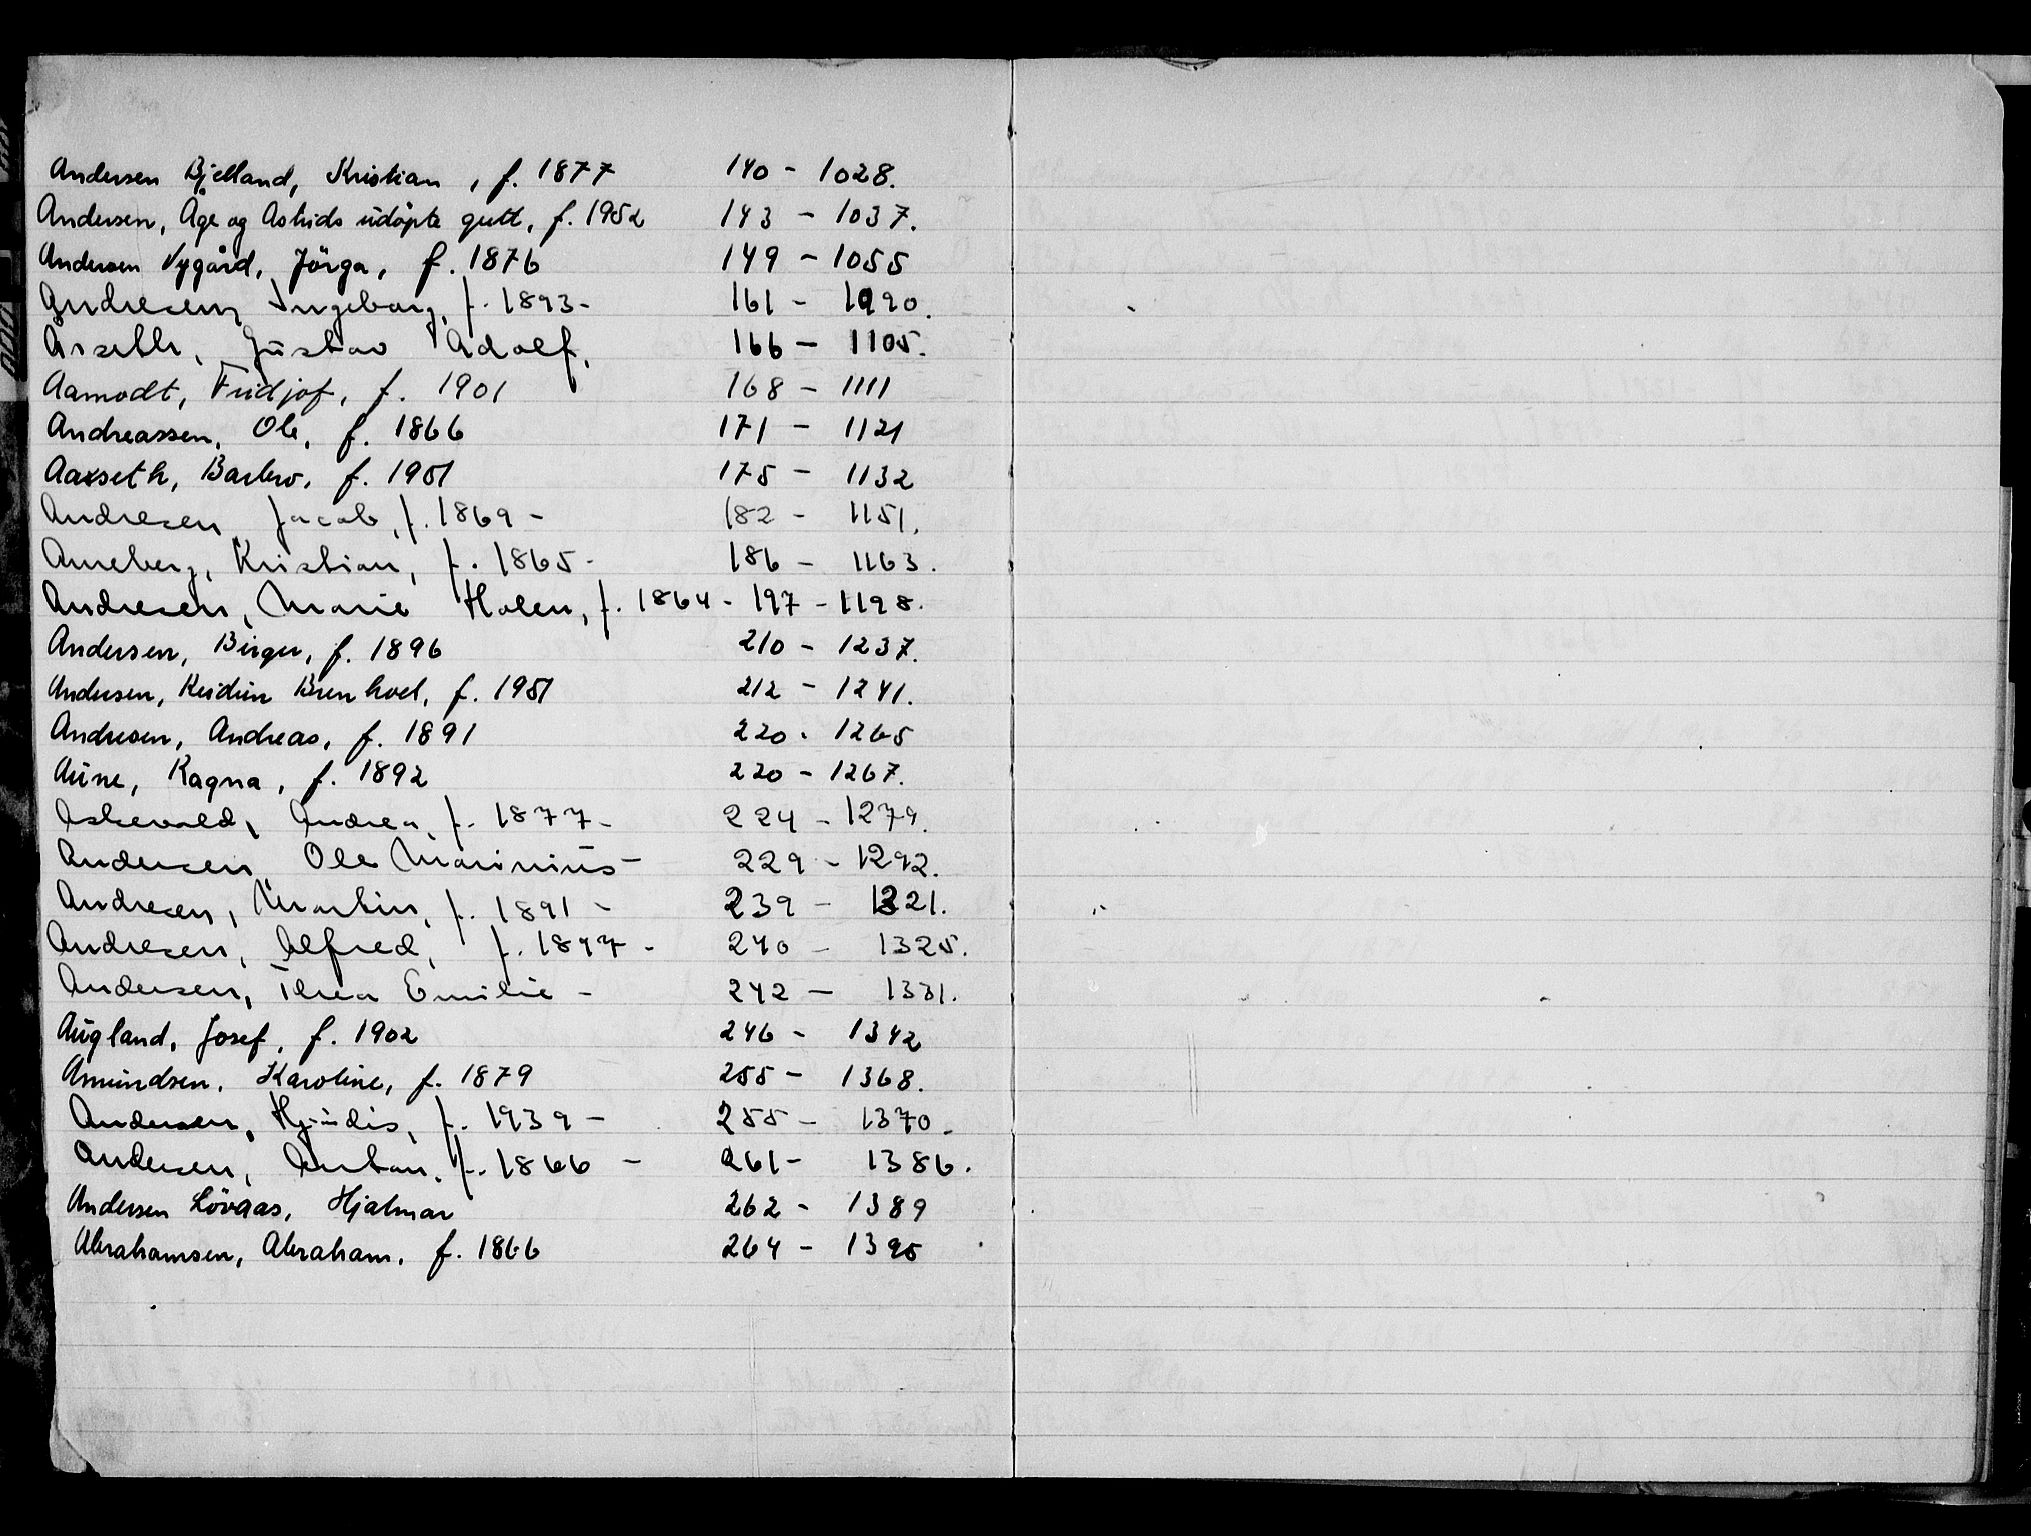 Andersen Bjelland, Kristian, f. 1877 140 - 1028.
Andersen, Åge og Astrids udöpte gutt, f. 1952 143 - 1037.
Andersen Nygård, Jörga, f. 1876 149 - 1055
Andresen, Ingeborg, f. 1893- 161 - 1090.
Årseth, Gustav Adolf, 166 - 1105.
Aamodt, Fridjof, f. 1901 168 - 1111
Andreassen, Ole, f. 1866 171 - 1121
Aarseth, Barbro, f. 1951 175 - 1132
Andresen, Jacob, f. 1869 - 182 - 1151.
Arneberg, Kristian, f. 1865- 186 - 1163.
Andresen, Marie Holen, f. 1864 - 197 - 1198.
Andersen, Birger, f. 1896 210 - 1237.
Andersen, Reidun Brenhoel, f. 1951 212 - 1241.
Andresen, Andreas, f. 1891 220 - 1265
Aune, Ragna, f. 1892 220 - 1267.
Askevold, Andrea, f. 1877- 224 - 1279.
Andersen Ole Marinius - 229 - 1292.
Andresen, Martin, f. 1891 - 239 - 1321.
Andresen, Alfred, f. 1897 - 240 - 1325.
Andersen, Thea Emilie - 242 - 1331.
Augland, Josef, f. 1902 246 - 1342
Amundsen, Karoline, f. 1879 255 - 1368.
Andersen, Hjördis, f. 1939 - 255 - 1370.
Andersen, Anton, f. 1866 - 261 - 1386.
Andersen Lövaas, Hjalmar 262 - 1389
Abrahamsen, Abraham, f. 1866 264 - 1395